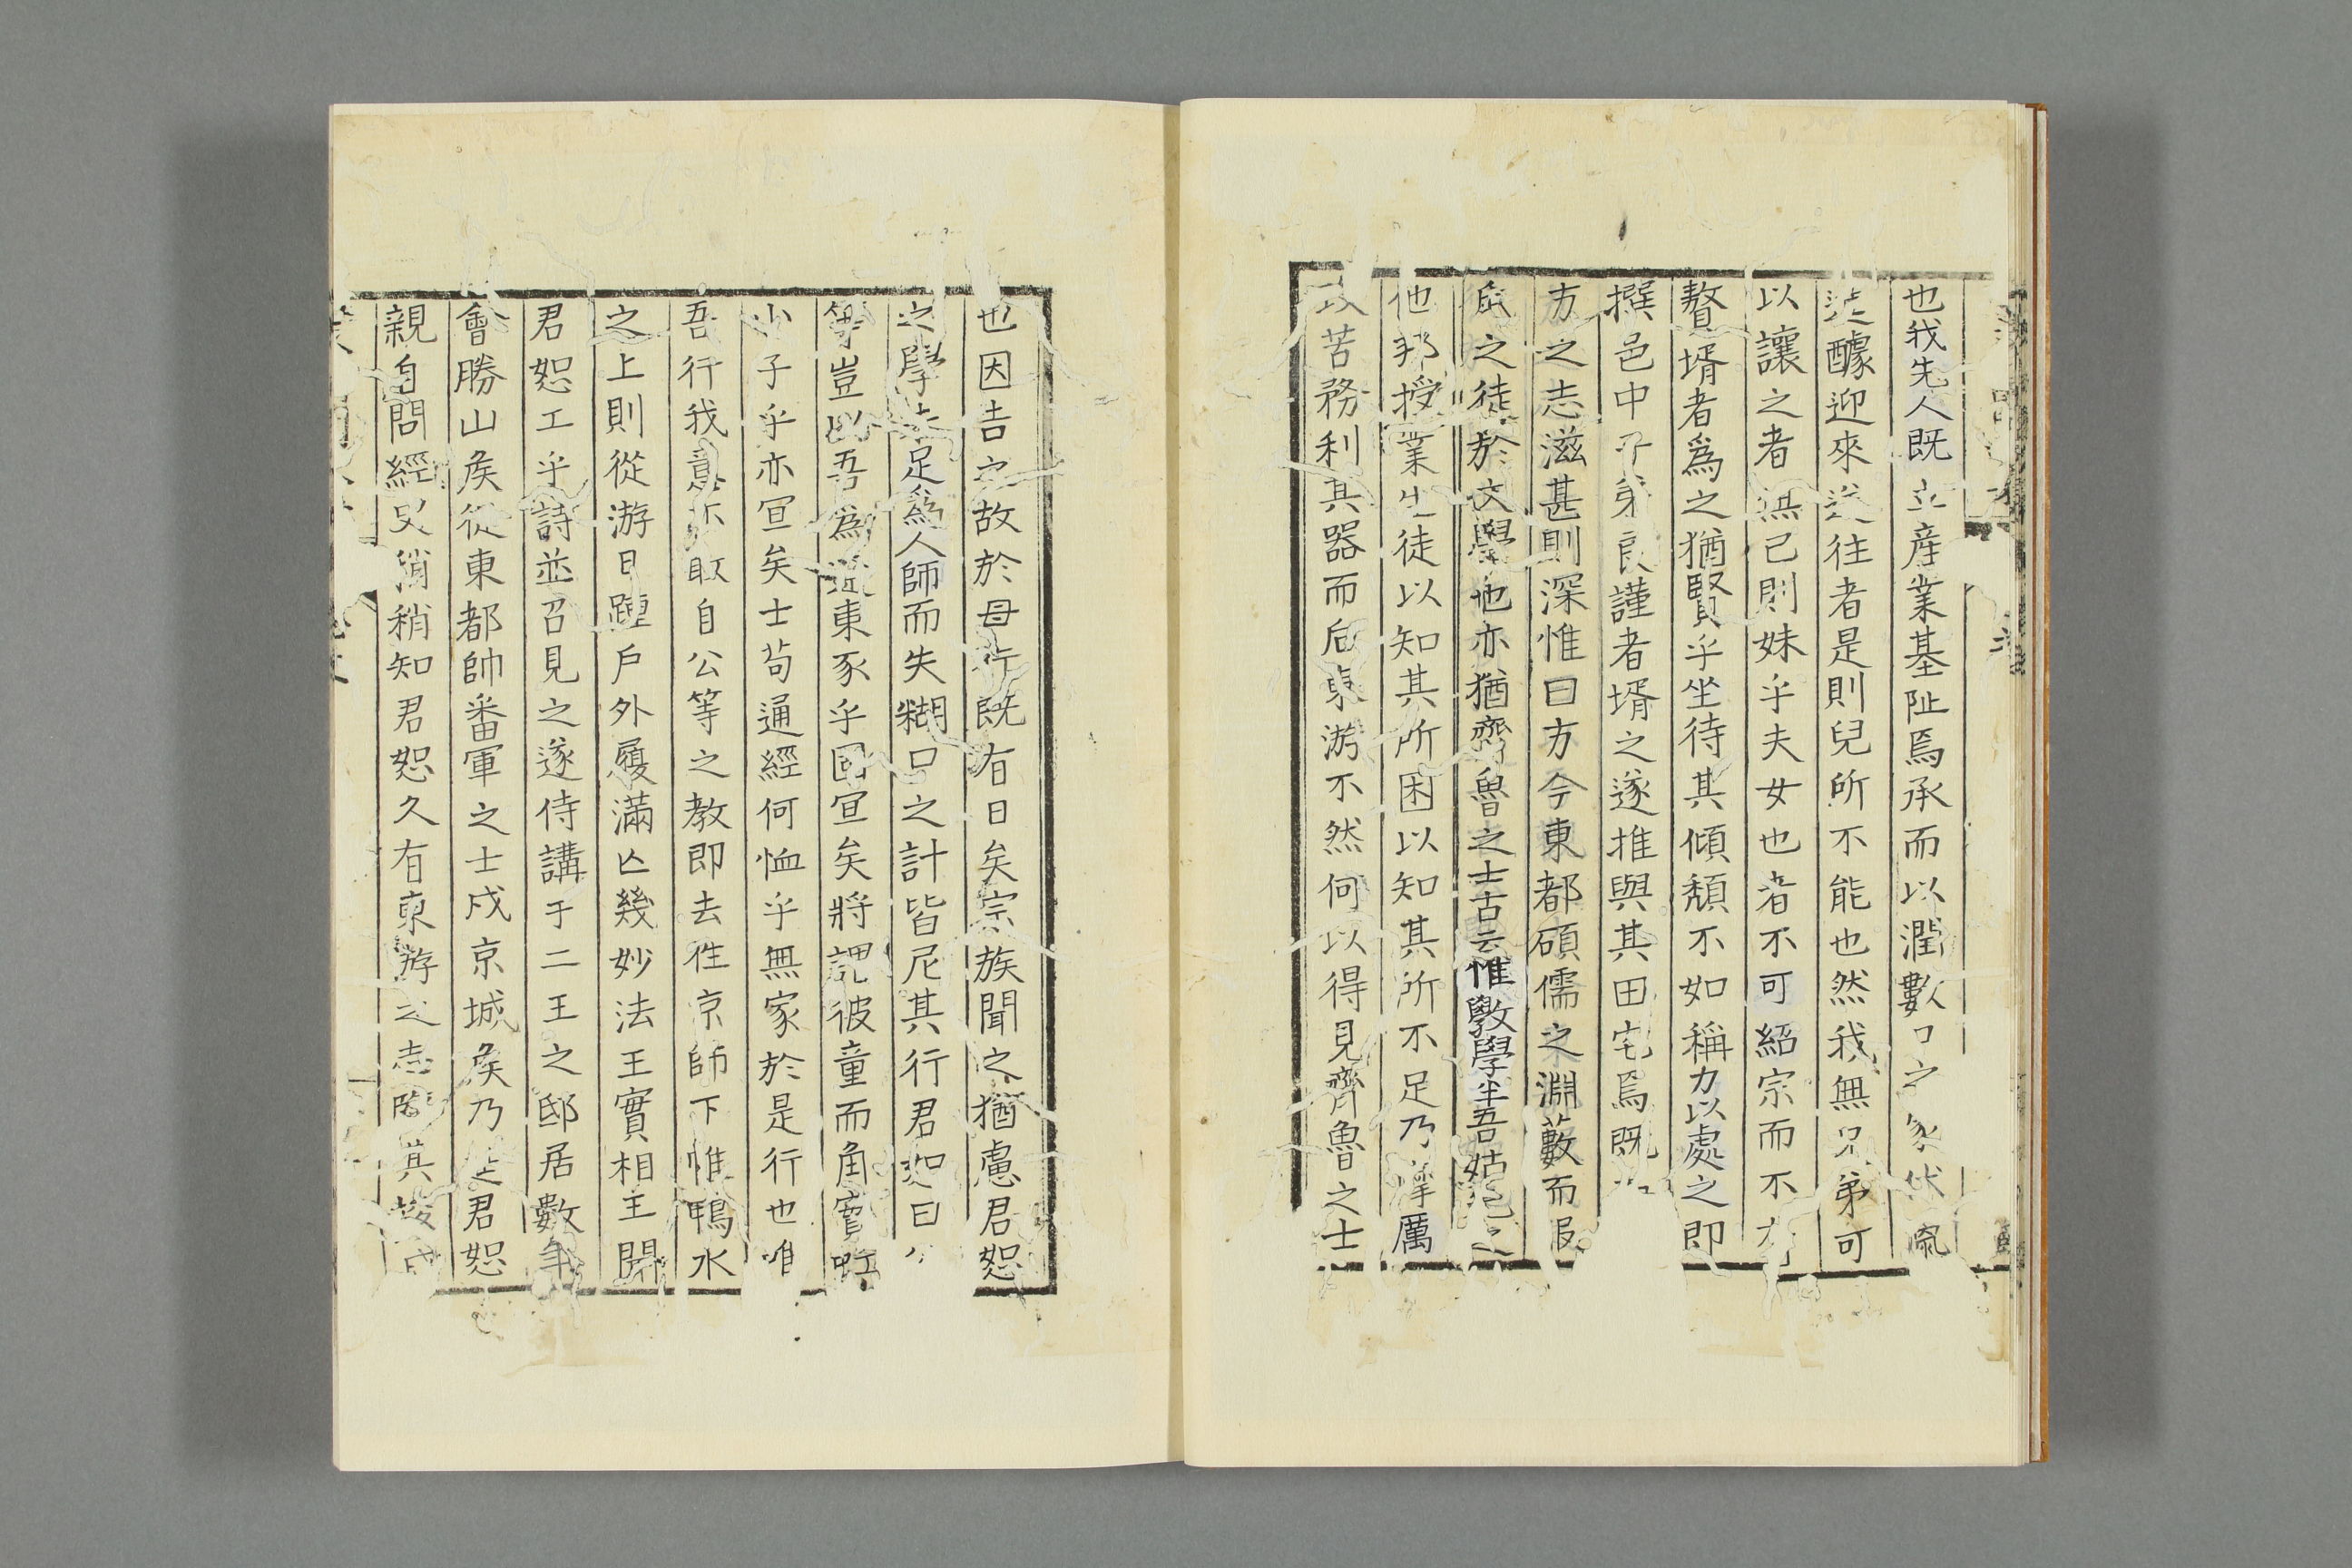 也我先人既立産業基阯焉承而以潤數口之家伏臘
醵迎來送往者是則兒所不能也然我無兄弟可
以讓之者無已則妹乎夫女也者不可紹宗而不
贅壻者爲之猶賢乎坐待其傾頽不如稱力以處之即
撰邑中子弟良謹者壻之遂推與其田宅焉既
方之志滋甚則深惟曰方今東都碩儒之淵藪而
之徒於文學也亦猶齊魯之士古云惟斆學半吾姑
他邦授業生徒以知其所困以知其所不足乃淬厲
攻苦務利其器而后東游不然何以得見齊魯之士
也因告之故於母行既有日矣宗族聞之猶慮君恕
之學未足爲人師而失糊口之計皆尼其行君恕曰
等豈以吾爲遼東豕乎國宜矣將謂彼童而角實虹
小子乎亦宜矣士苟通經何恤乎無家於是行也唯
吾行我意亦敢自公等之教即去徃京師下惟鴨水
之上則從游日踵戶外履滿亡幾妙法王實相王聞
君恕工乎詩並召見之遂侍講于二王之邸居數年
會勝山矦從東都帥番軍之士戍京城矦乃延君恕
親自問經義稍稍知君恕久有東游之志